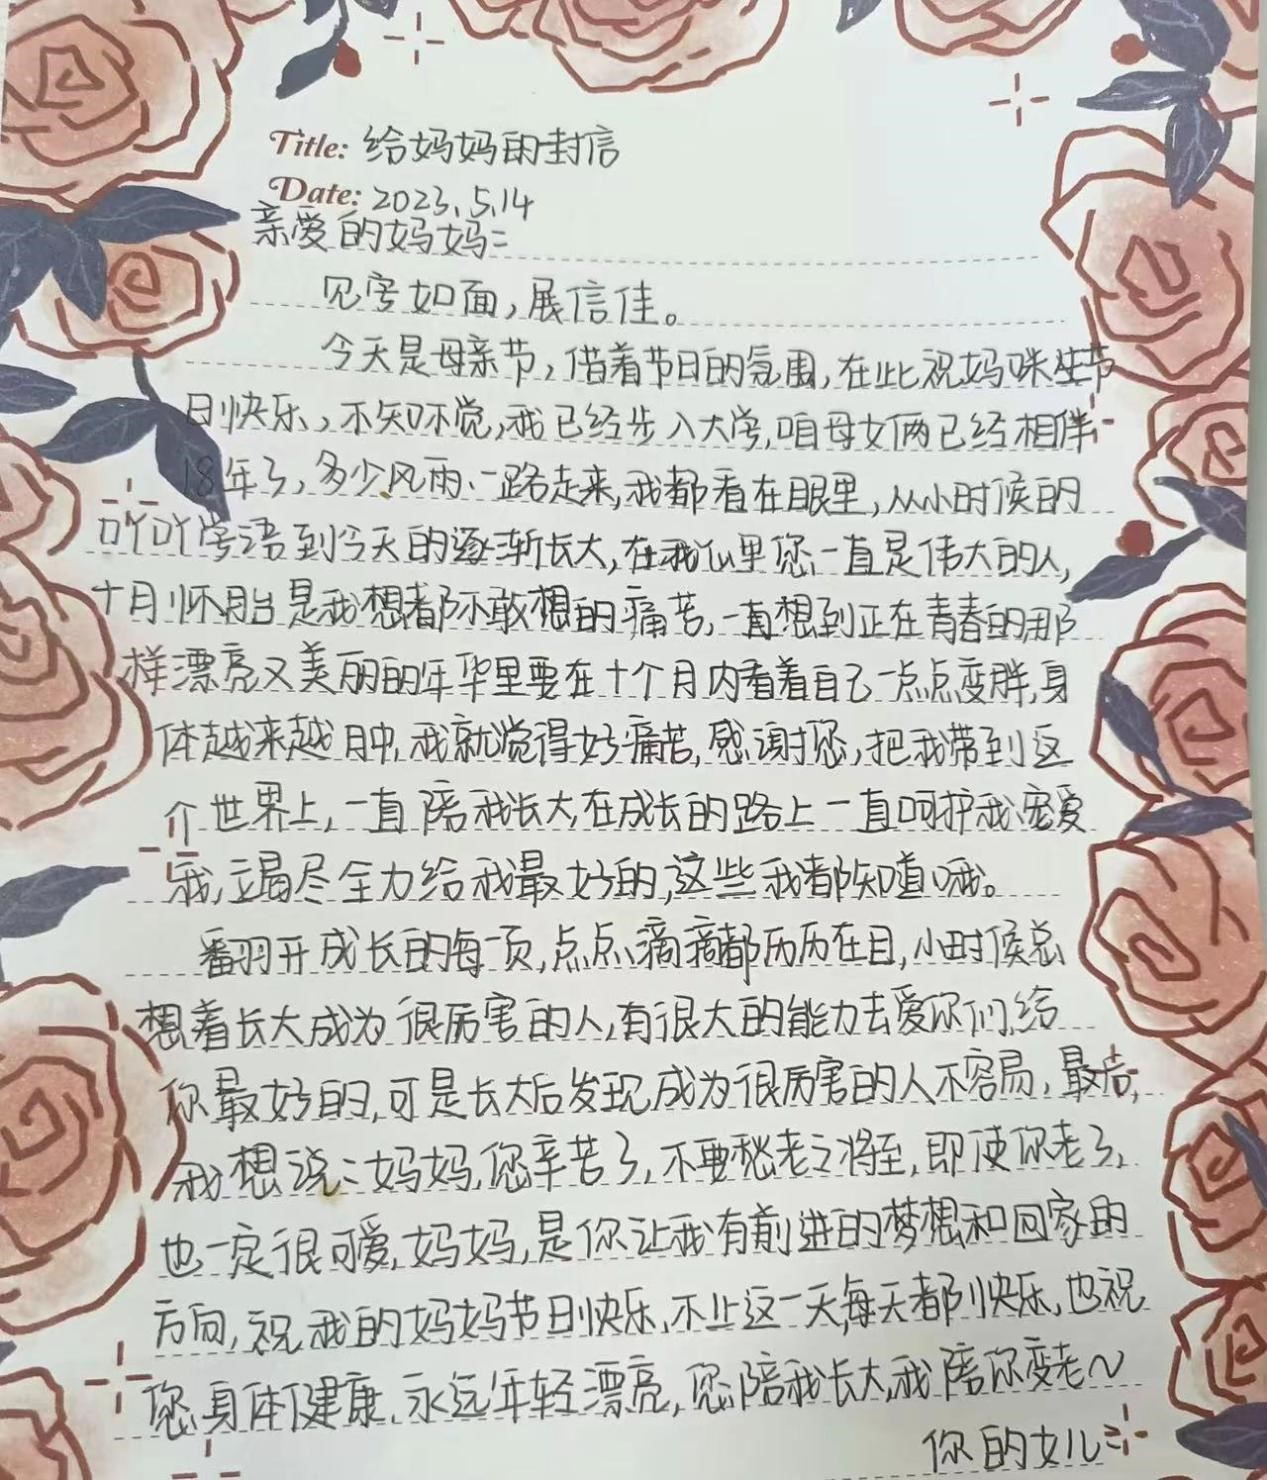 Title: 给妈妈的封信
Date: 2023.5.14
亲爱的妈妈:
见字如面,展信佳。
今天是母亲节,借着节日的氛围,在此祝妈咪节
日快乐,不知不觉,我已经步入大学,咱母女俩已经相伴
18年了,多少风雨一路走来,我都看在眼里,从小时候的
吖吖学语到今天的逐渐长大,在我心里您一直是伟大的人,
十月怀胎是我想都不敢想的痛苦,一直想到正在青春的那
样漂亮又美丽的年华里要在十个月内看着自己一点点变胖,身
体越来越肿,我就觉得好痛苦,感谢您,把我带到这
个世界上,一直陪我长大,在成长的路上一直呵护我宠爱
我,竭尽全力给我最好的,这些我都知道哦。
翻开成长的每一页,点点滴滴都历历在目,小时候总
想着长大成为很厉害的人,有很大的能力去爱你们,给
你最好的,可是长大后发现成为很厉害的人不容易,最后,
我想说:妈妈,您辛苦了,不要愁老之将至,即使你老了,
也一定很可爱,妈妈,是你让我有前进的梦想和回家的
方向,祝我的妈妈节日快乐,不止这一天,每天都快乐,也祝
您身体健康,永远年轻漂亮,您陪我长大,我陪你变老~
你的女儿: